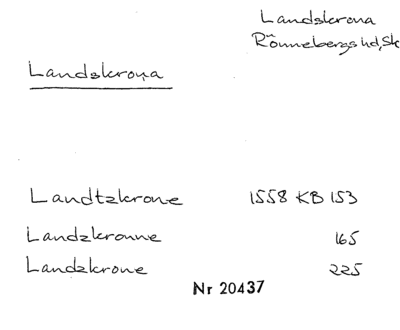 Landskrona
Rönnebergs hd, Sk
Landskrona
Landtzkrone 1558 KB 153
Landzkronne 165
Landzkrone 225
Nr 20437